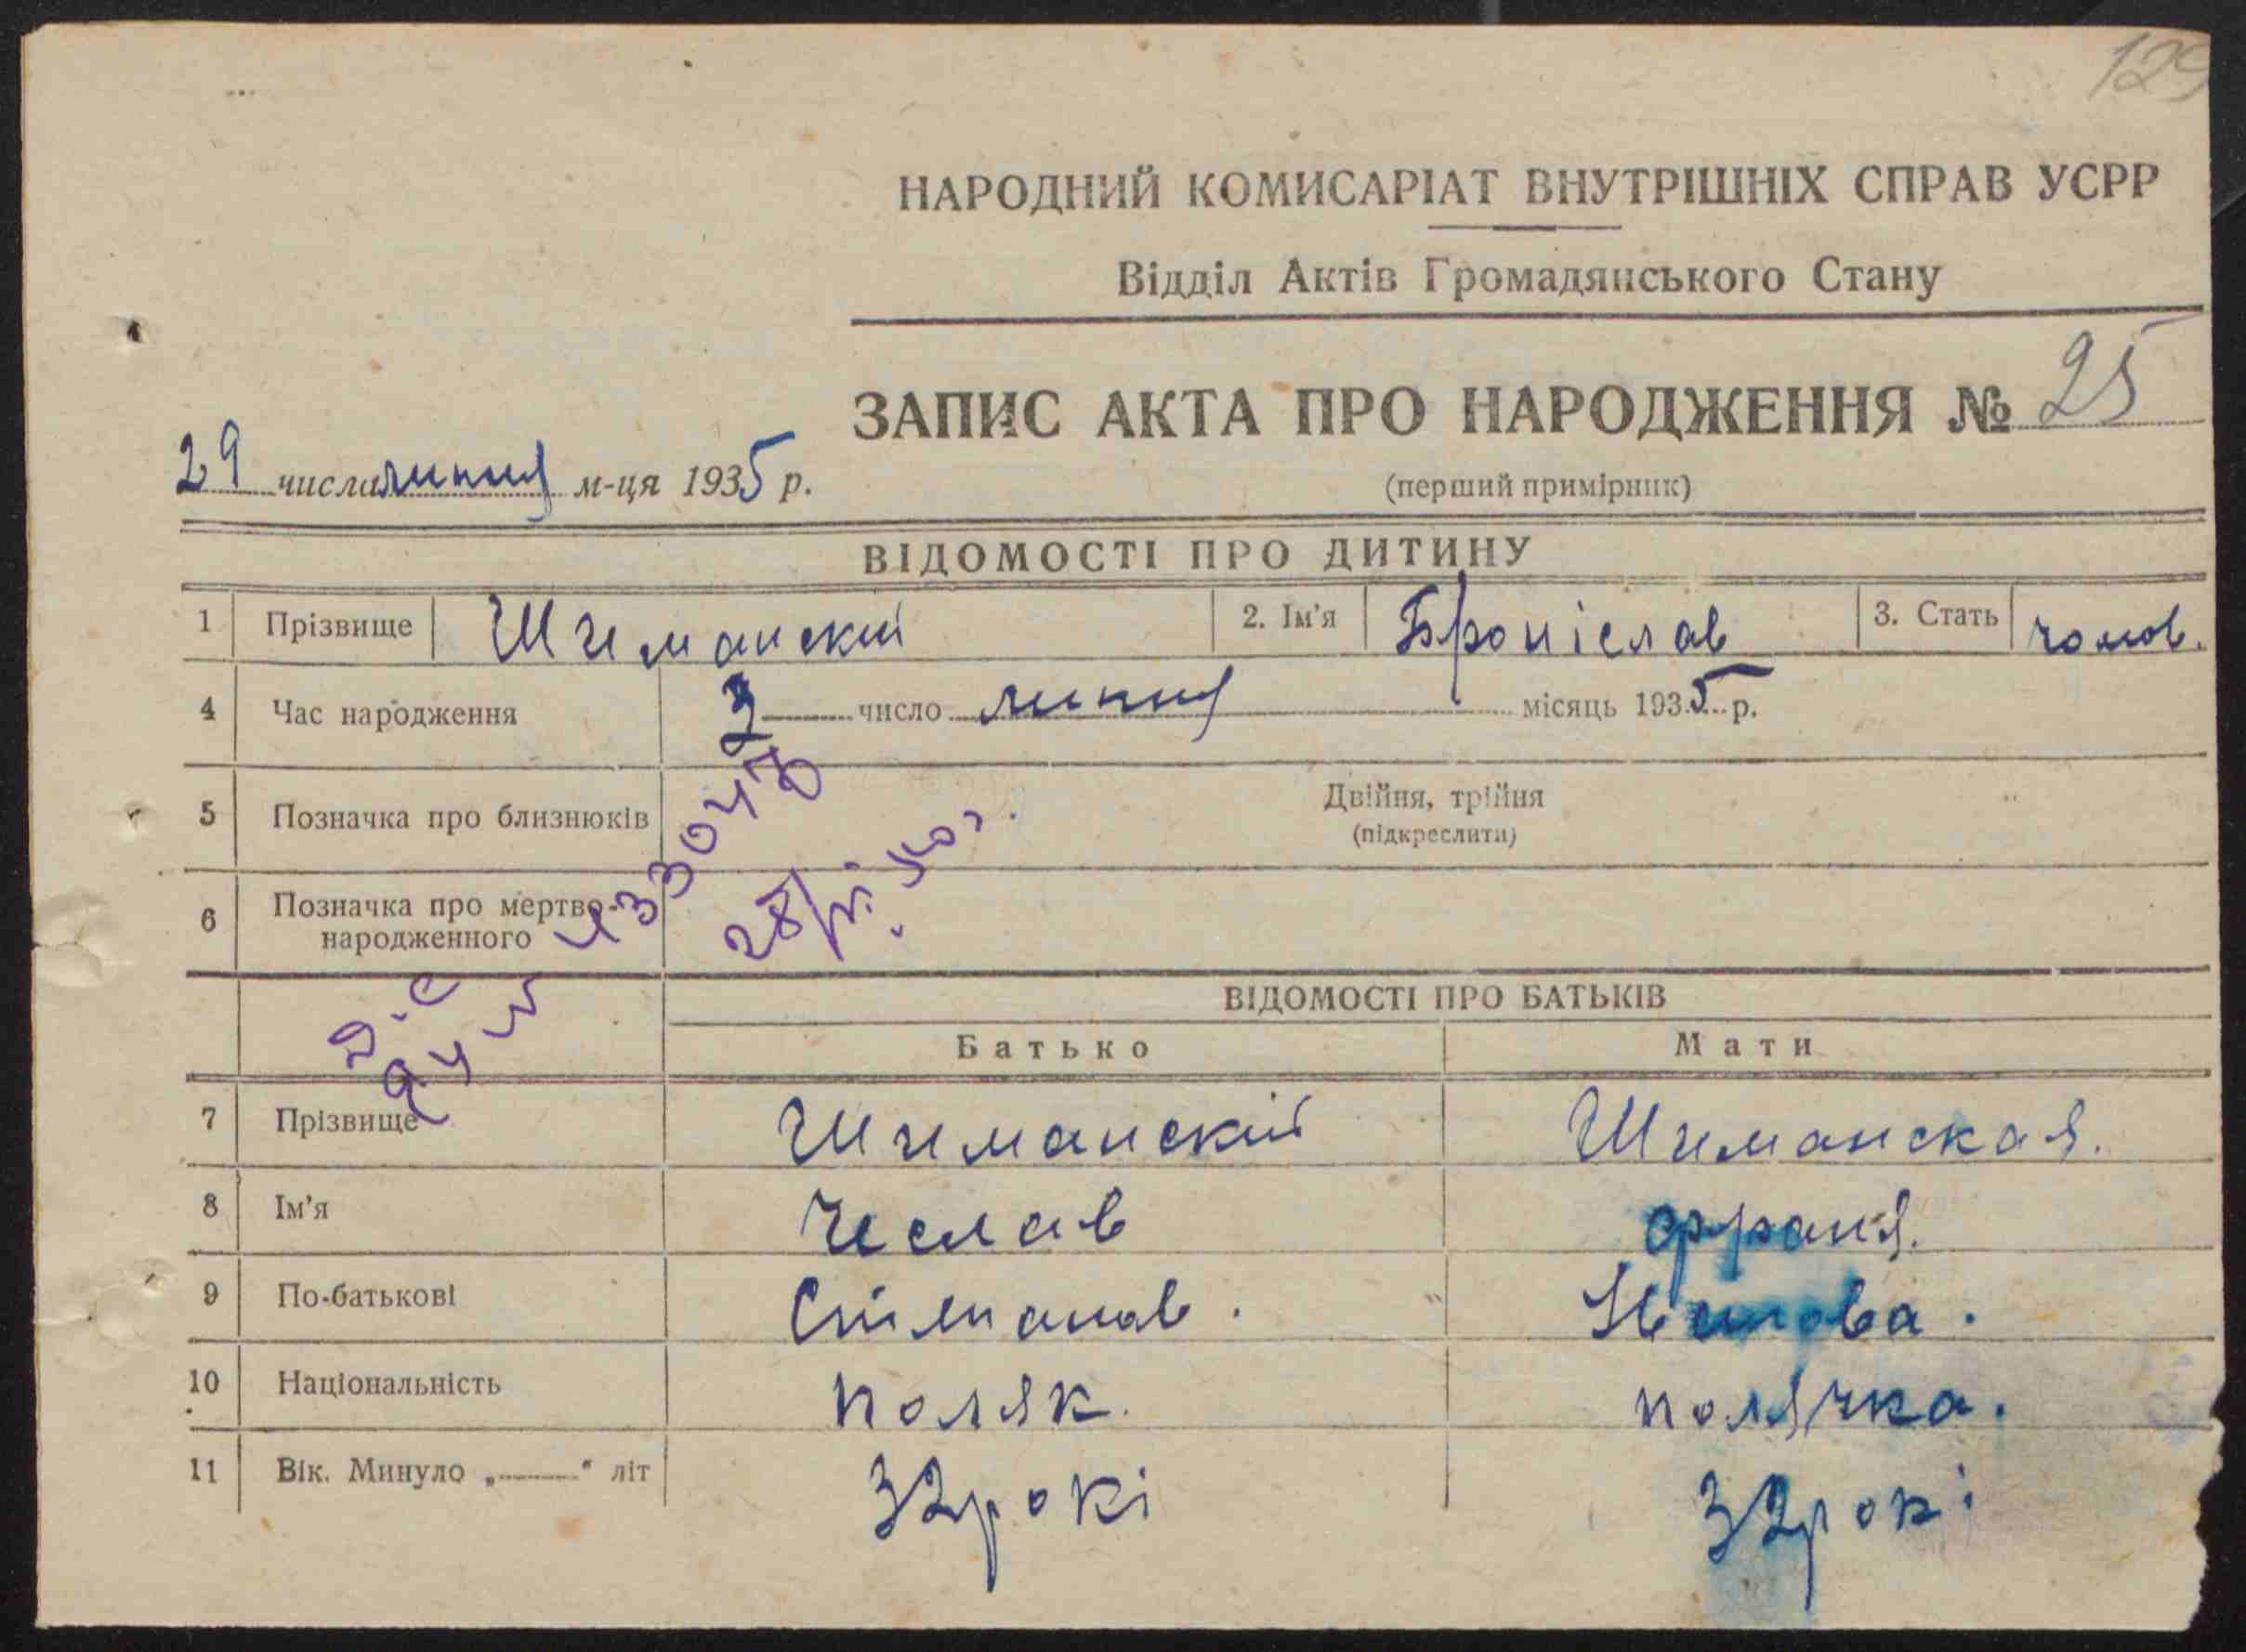 129
НАРОДНИЙ КОМИСАРІАТ ВНУТРІШНІХ СПРАВ УСРР
Відділ Актів Громадянського Стану
ЗАПИС АКТА ПРО НАРОДЖЕННЯ № 25
29 числа липня м-ця 1935 р.
(перший примірник)
ВІДОМОСТІ ПРО ДИТИНУ
1 Прізвище Шиманский 2. Ім'я Броніслав 3. Стать чолов.
4 Час народження число липня місяць 1935 р.
5 Позначка про близнюків Двійня, трійня
(підкреслити)
6 Позначка про мертво-
народженного
ВІДОМОСТІ ПРО БАТЬКІВ
Батько Мати
7 Прізвище Шиманский Шиманская.
8 Ім'я Чеслав Франя.
9 По-батькові
10 Національність поляк. полячка.
11 Вік. Минуло „——" літ 32 рокі 32 рокі